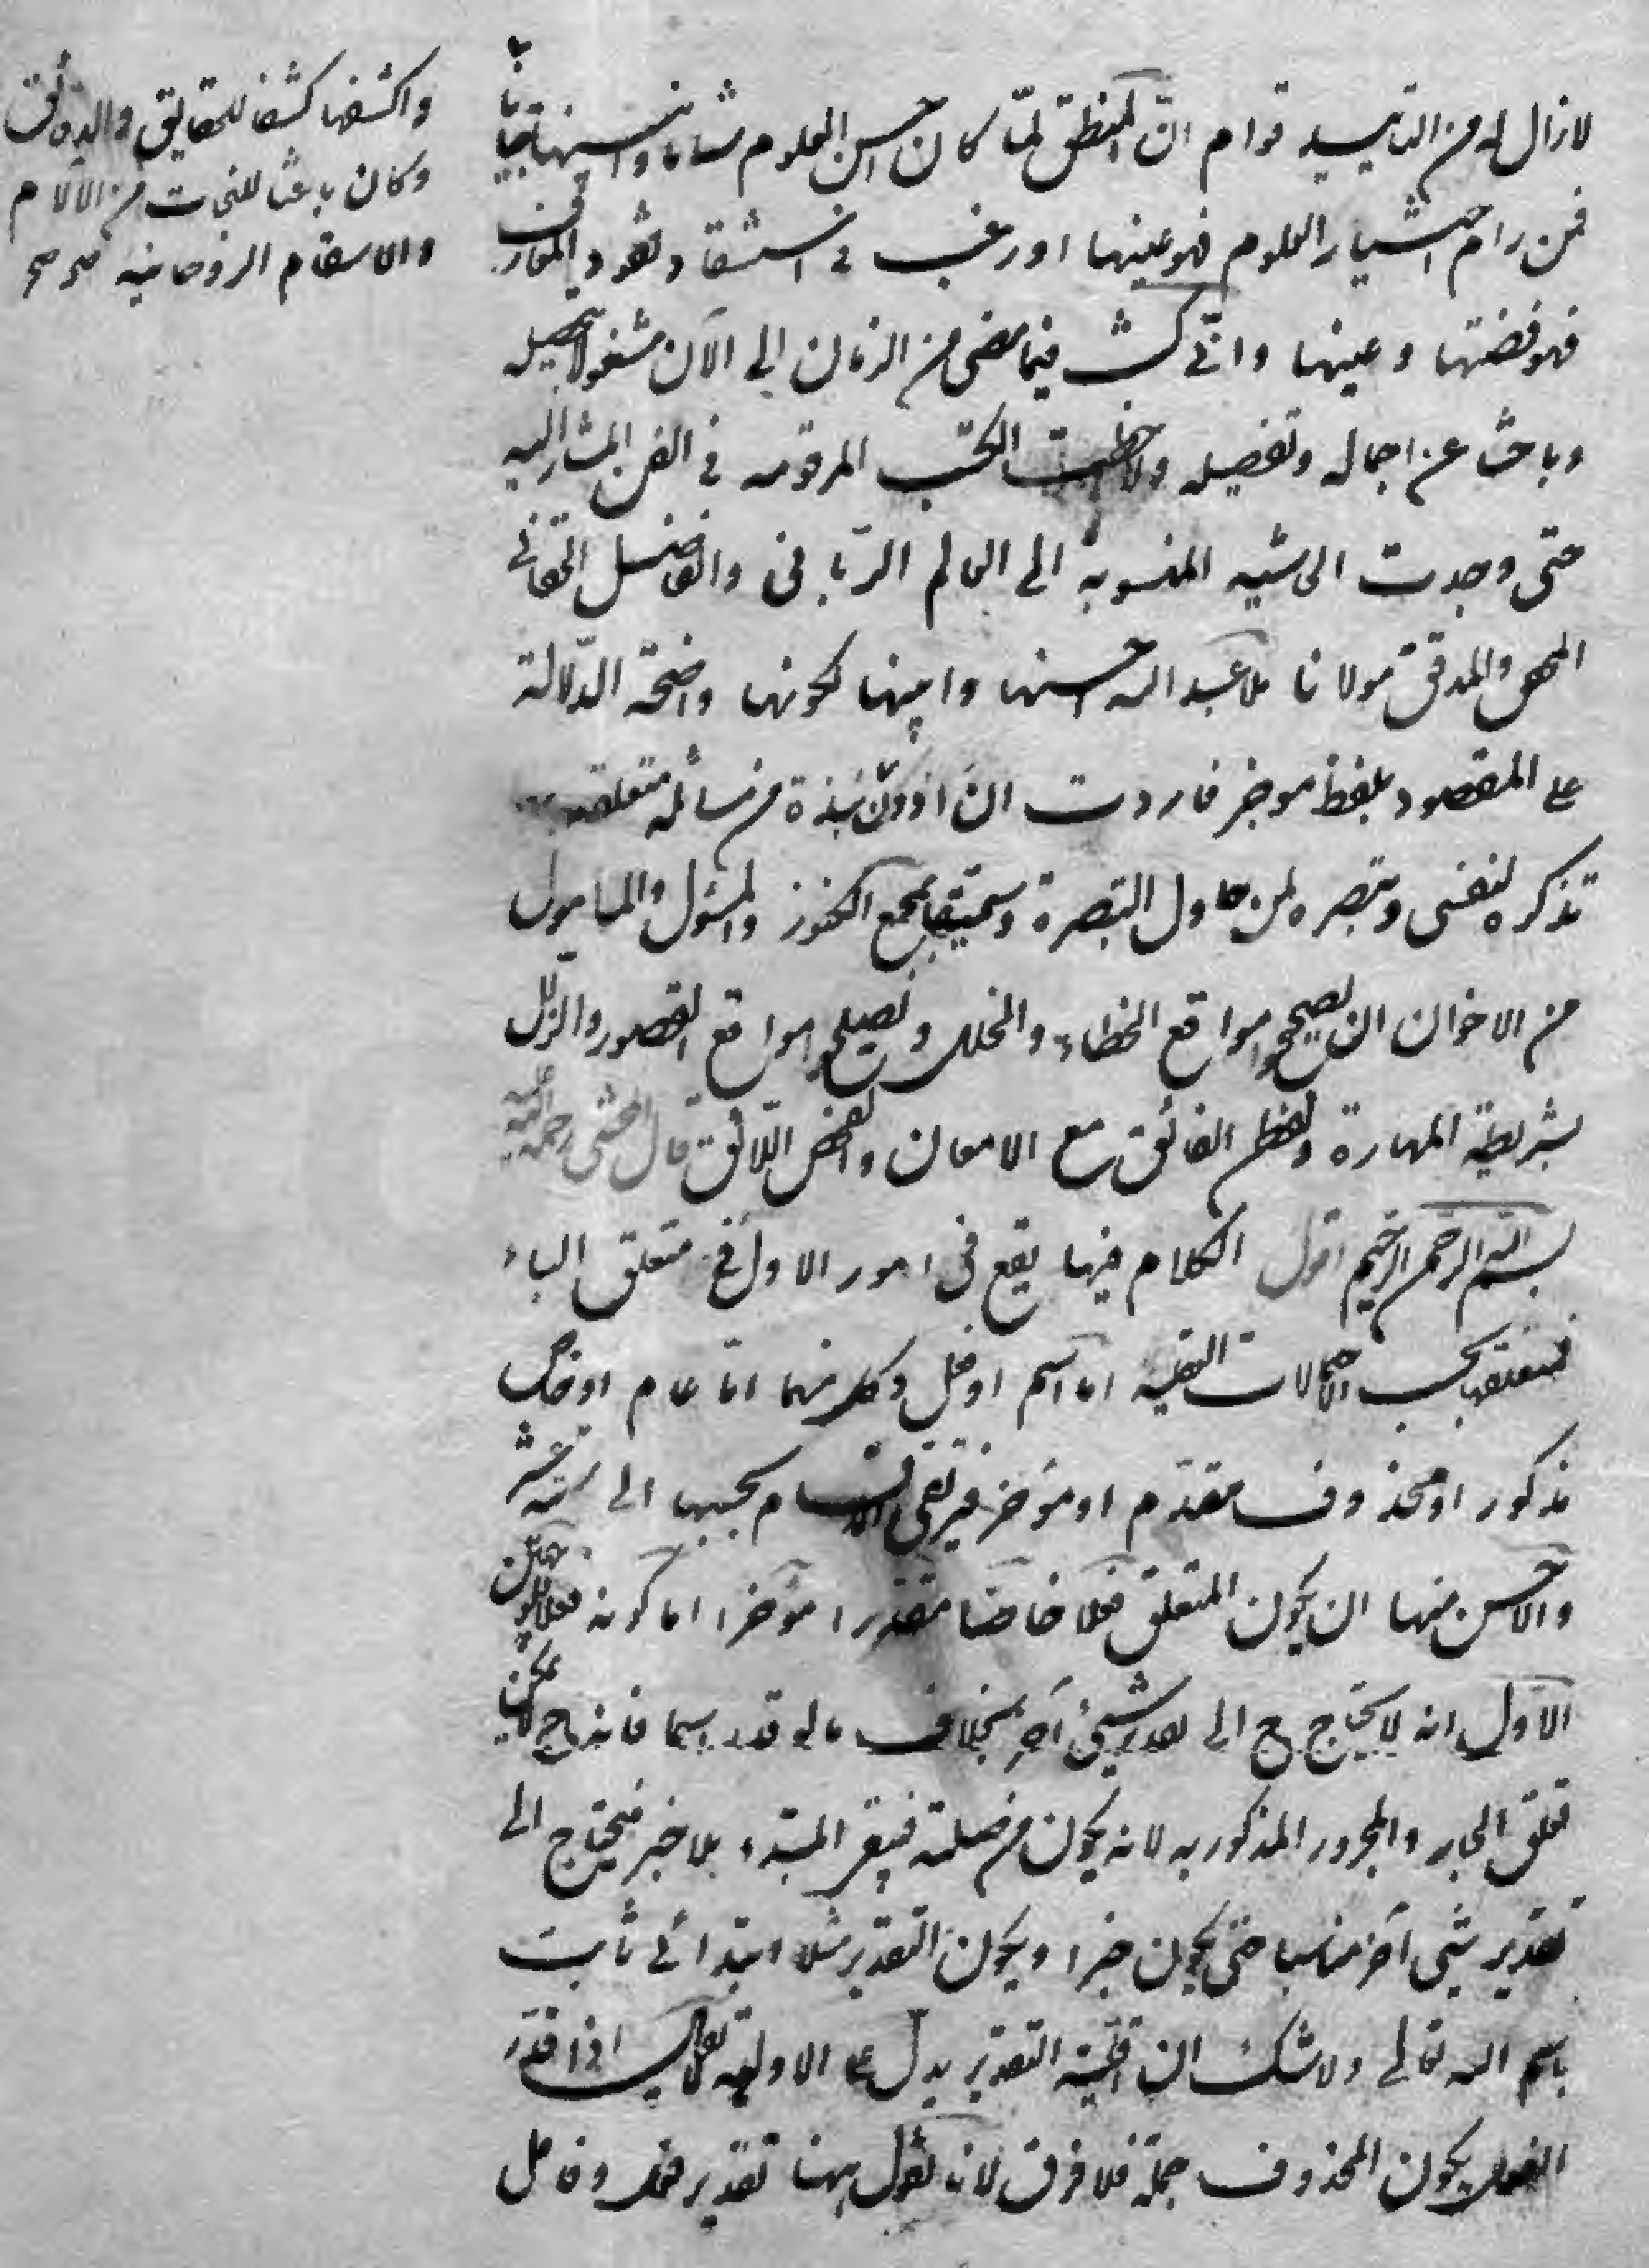 لازال له من التاييد قوام ان المنطق لما كان احسن العلوم شانا و ابينها تبيانا
واكشفها كشفا للحقايق والدقائق
وكان باعثا للنجات من الالام
والاسقام الروحانيه صح صح
فمن رام اختيار العلوم فهو عينها او رغب في استنقاد نقود المعارف
فهو فضتها وعينها وانى كنت فيما مضى من الزمان الى الآن مشغولا بتحصيله
وباحثا عن اجماله وتفصيله ولاحظت الكتب المرقومه فى الفن المشار اليه
حتى وجدت الحاشيه المنسوبة الى العالم الربانى والفاضل الحقانى
المحقق والمدقق مولانا ملا عبد الله احسنها وابينها لكونها واضحة الدلالة
على المقصود بلفظ موجز فاردت ان ادون نبذة من مسائله متعلقه بها
تذكره لنفسى وتبصره لمن حاول التبصرة وسميتها بمجمع الكنوز والمسئول والمامول
من الاخوان ان يصححوا مواقع الخطاء والخلل ويصلحوا مواقع القصور والزلل
بشريطة المهارة والنظر الفائق مع الامعان والفحص اللائق قال المحشى رحمة الله عليه
بسم الله الرحمن الرحيم اقول الكلام فيها يقع فى امور الاول فى متعلق الباء
فمتعلقها بحسب الاحتمالات العقليه اما اسم او فعل وكل منهما اما عام او خاص
مذكور او محذوف مقدم او مؤخر فيرتقى الاقسام بحسبها الى سته عشر
والاحسن منها ان يكون المتعلق فعلا خاصا مقدرا مؤخرا اما كونه فعلا فلوجهين
الاول انه لا يحتاج ح الى تقدير شيئ آخر بخلاف ما لو قدر اسما فانه ح لا يمكن
تعلق الجار والمجرور المذكور به لانه يكون من صلته فيبقى المبتدء بلا خبر فيحتاج الى
تقدير شيئ آخر مناسبا حتى يكون خبرا ويكون التقدير مثلا ابتدائى ثابت
باسم الله تعالى ولا شك ان قلية التقدير يدل على الاولويه لا يقال اذا قدر
الفعل يكون المحذوف جملة فلا فرق لانا نقول هنا تقدير فعل وفاعل